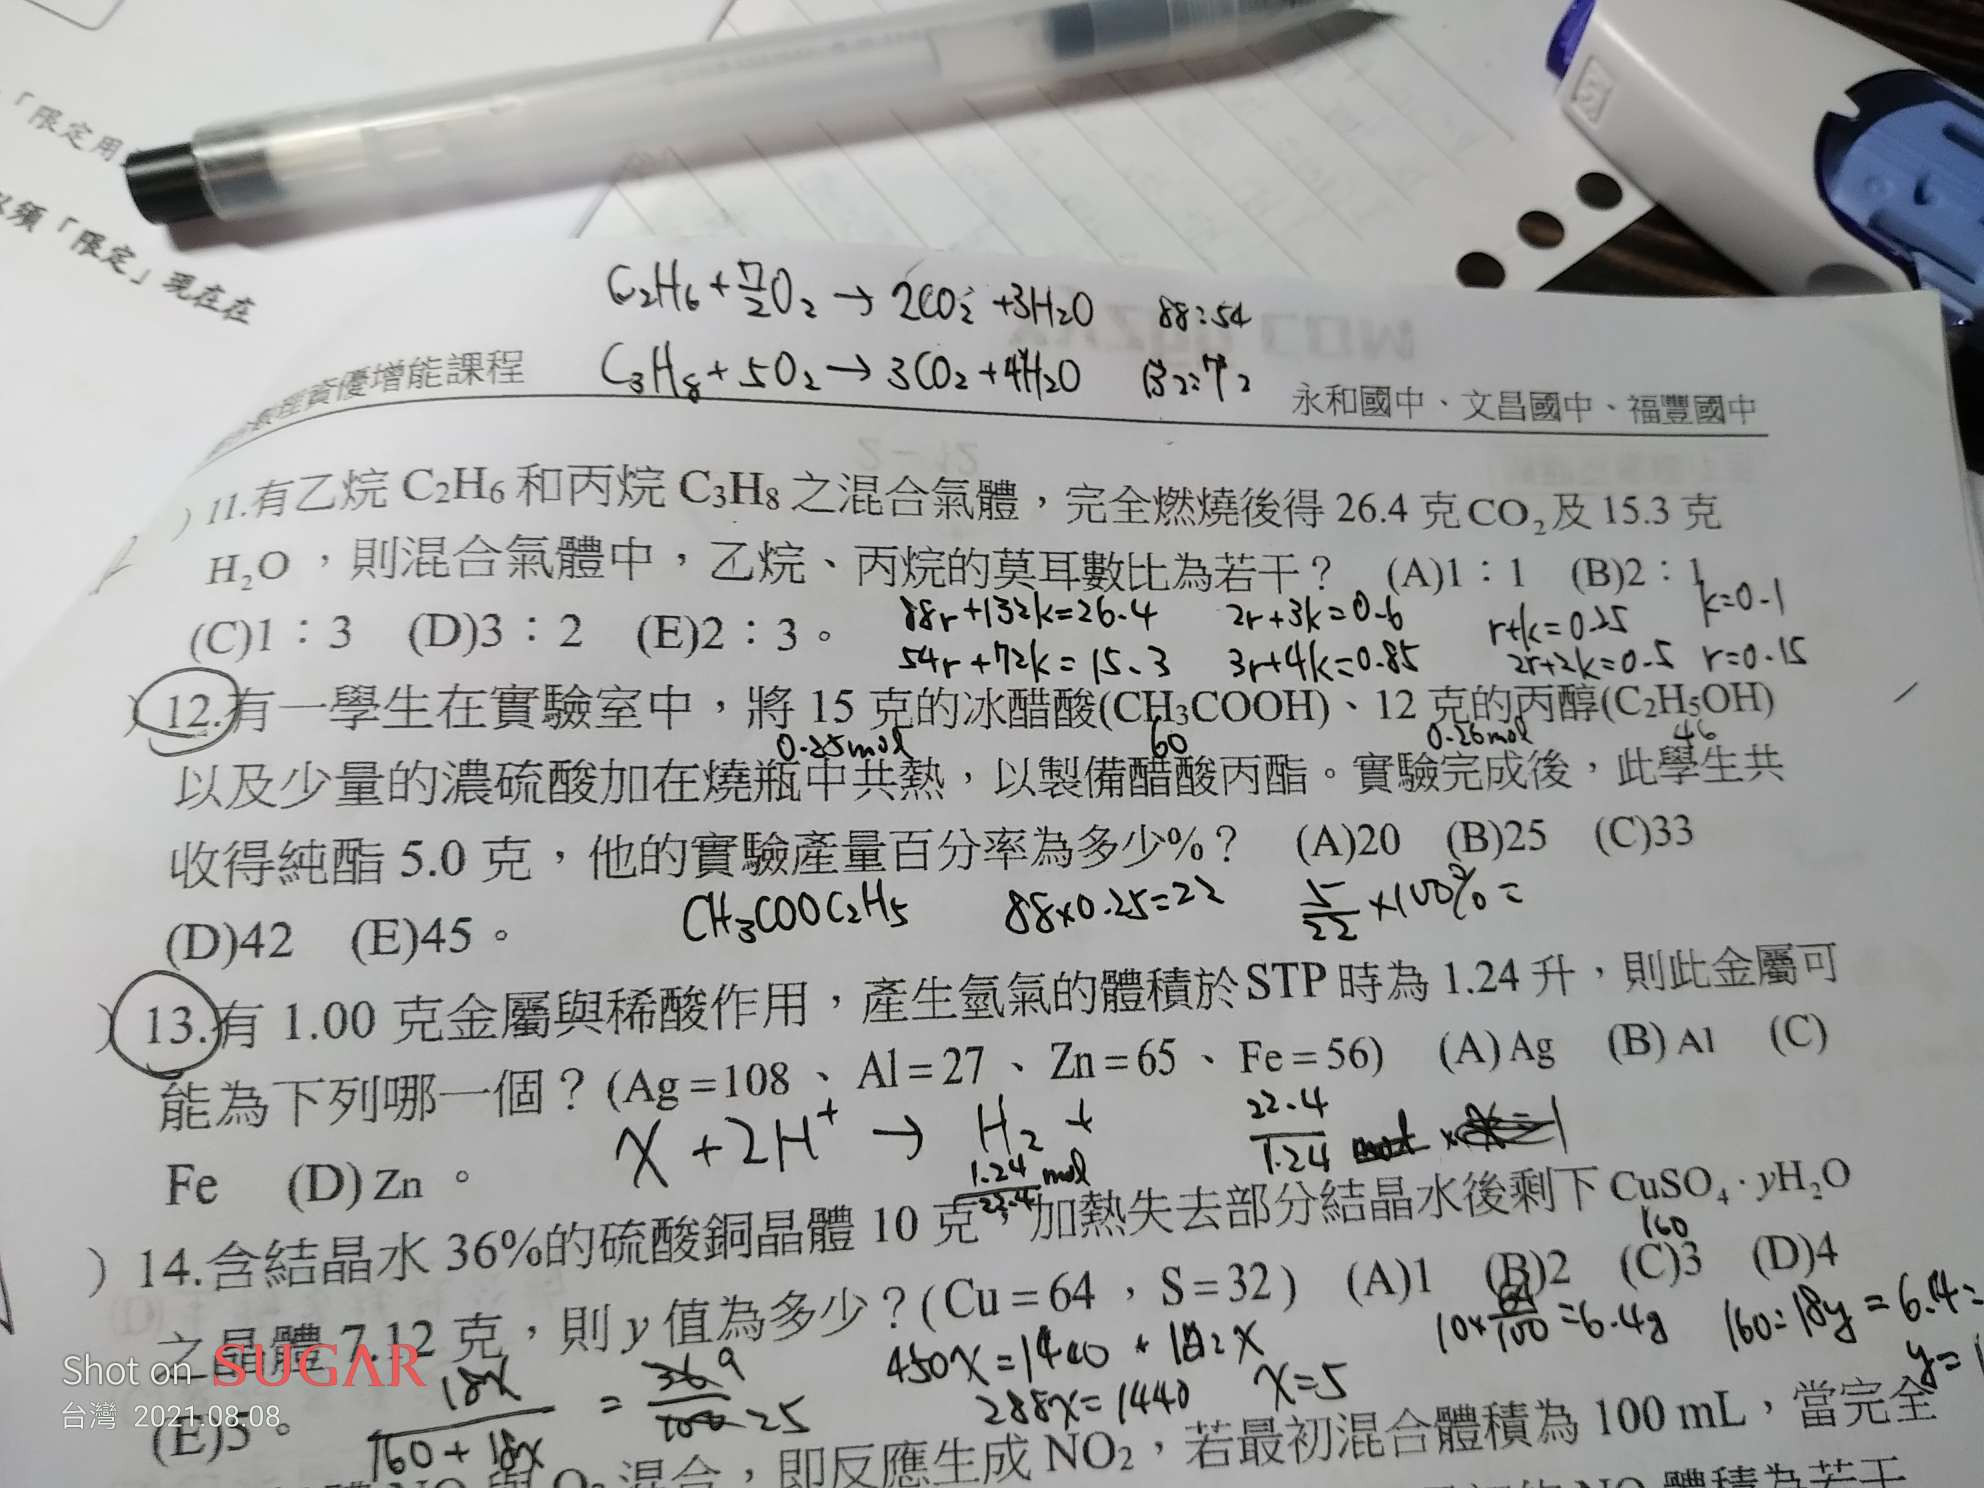 「限定用
須「限定」現在在
C₂H₆+7/2O₂→2CO₂+3H₂O 88:54
C₃H₈+5O₂→3CO₂+4H₂O 132:72
資優增能課程
永和國中、文昌國中、福豐國中
)11.有乙烷 C₂H₆ 和丙烷 C₃H₈ 之混合氣體，完全燃燒後得 26.4 克 CO₂ 及 15.3 克
H₂O，則混合氣體中，乙烷、丙烷的莫耳數比為若干？ (A)1：1 (B)2：1
(C)1：3 (D)3：2 (E)2：3。
88r+132k=26.4 2r+3k=0.6 r+k=0.25 k=0.1
54r+72k=15.3 3r+4k=0.85 2r+2k=0.5 r=0.15
)12.有一學生在實驗室中，將 15 克的冰醋酸(CH₃COOH)、12 克的丙醇(C₂H₅OH)
0.25mol 60 0.26mol 46
以及少量的濃硫酸加在燒瓶中共熱，以製備醋酸丙酯。實驗完成後，此學生共
收得純酯 5.0 克，他的實驗產量百分率為多少%？ (A)20 (B)25 (C)33
(D)42 (E)45。
CH₃COOC₂H₅ 88×0.25=22 5/22×100%=
)13.有 1.00 克金屬與稀酸作用，產生氫氣的體積於 STP 時為 1.24 升，則此金屬可
能為下列哪一個？(Ag=108、Al=27、Zn=65、Fe=56) (A)Ag (B)Al (C)
Fe (D)Zn。
X+2H⁺→H₂+ 22.4/1.24
1.24/22.4 mol
)14.含結晶水 36%的硫酸銅晶體 10 克，加熱失去部分結晶水後剩下 CuSO₄·yH₂O
160
之晶體 7.12 克，則 y 值為多少？(Cu=64，S=32) (A)1 (B)2 (C)3 (D)4
10×64/100=6.4g 160:18y=6.4:
y=
(E)5。
18x/160+18x = 36/100 9 25
450x=1440+162x
288x=1440 x=5
混合，即反應生成 NO₂，若最初混合體積為 100 mL，當完全
Shot on SUGAR
台灣 2021.08.08